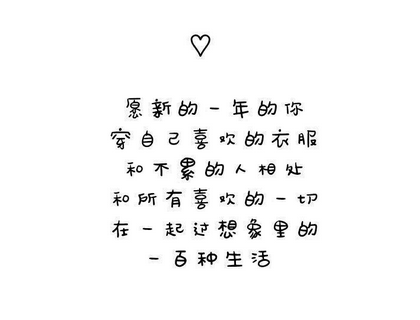 愿新的一年的你
穿自己喜欢的衣服
和不累的人相处
和所有喜欢的一切
在一起过想象里的
一百种生活